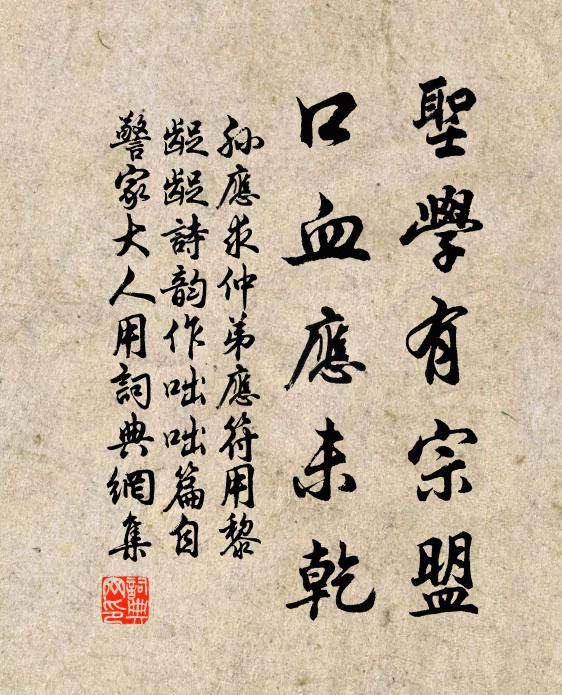 聖學有宗盟
口血應未乾
孫應求仲弟應符用黎
齪齪詩韵作咄咄篇自
警家大人用詞典網集
詞典网印